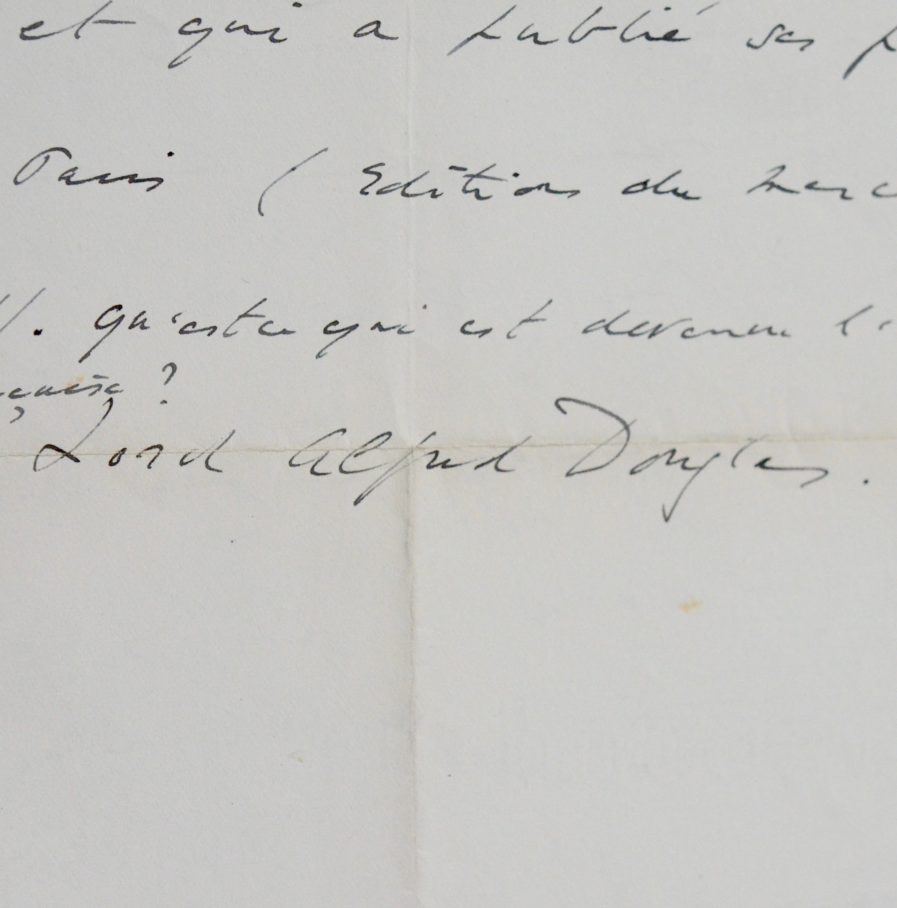 et qui a publié ses p
Paris ( Editions du Merc
. Qu'est ce qui est devenu l'
çaise ?
Lord Alfred Douglas.